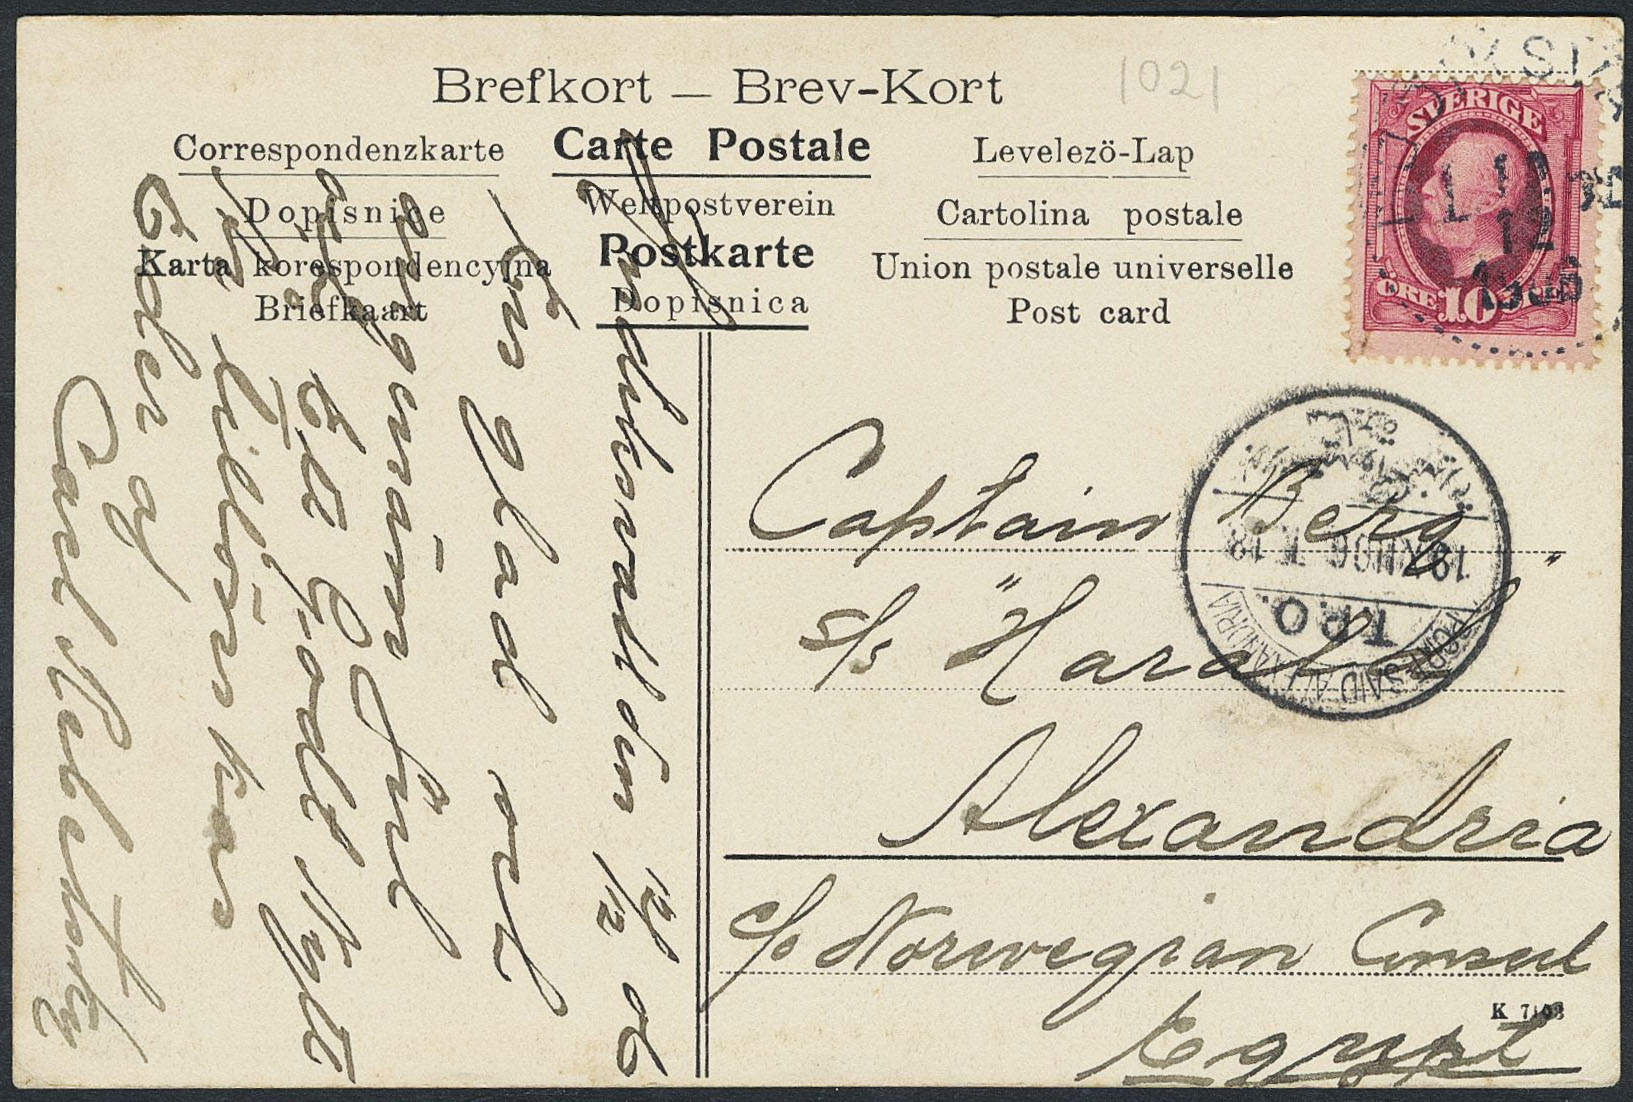 Brefkort — Brev-Kort
1021
Correspondenzkarte
Carte Postale
Levelező-Lap
Dopisnice
Weltpostverein
Cartolina postale
Karta korespondencyjna
Postkarte
Union postale universelle
Briefkaart
Dopisnica
Post card
SVERIGE
ÖRE 10 ÖRE
12
1906
18 XII 06 T.18
T.P.O.
PORT-SAID ALEXANDRIA
Captain Berg
s/s "Harald"
Alexandria
c/o Norwegian Consul
Egypt
K 7103
den 12/12 06
En glad och
Jul
Ett Godt Nytt
År tillönskas
Eder af
Carl